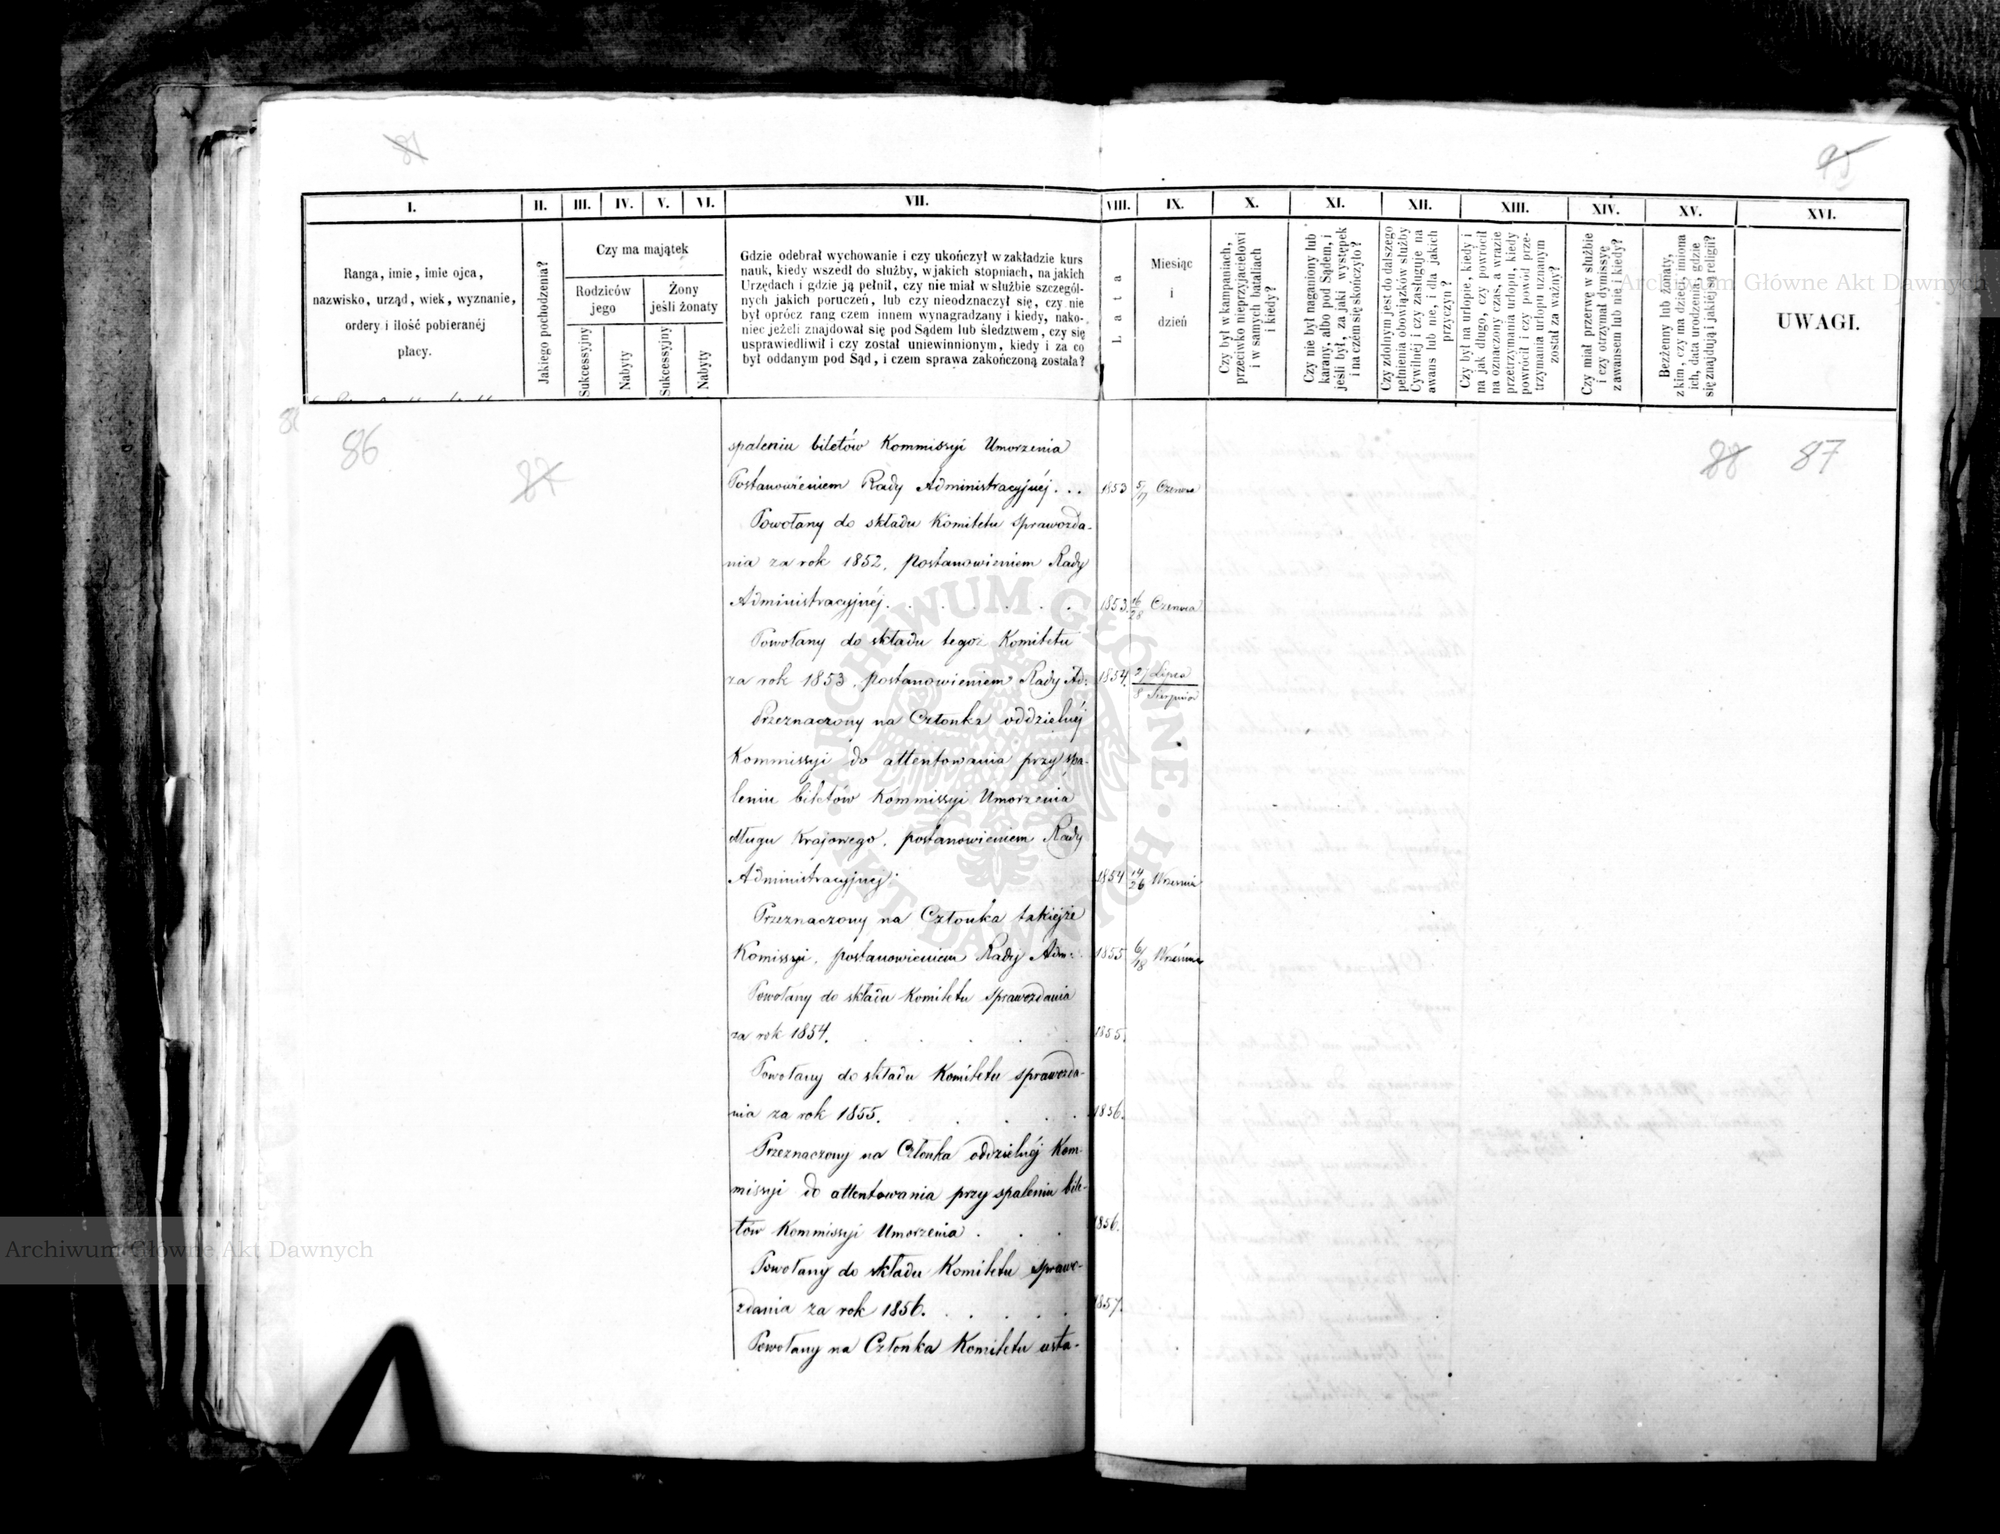 81
95
I.
II.
III.
IV.
V.
VI.
VII.
VIII.
IX.
X.
XI.
XII.
XIII.
XIV.
XV.
XVI.
Ranga, imie, imie ojca,
nazwisko, urząd, wiek, wyznanie,
ordery i ilość pobieranéj
płacy.
Jakiego pochodzenia?
Czy ma majątek
Rodziców
jego
Żony
jeśli żonaty
Sukcessyjny
Nabyty
Sukcessyjny
Nabyty
Gdzie odebrał wychowanie i czy ukończył w zakładzie kurs
nauk, kiedy wszedł do służby, w jakich stopniach, na jakich
Urzędach i gdzie ją pełnił, czy nie miał w służbie szczegól-
nych jakich poruczeń, lub czy nieodznaczył się, czy nie
był oprócz rang czem innem wynagradzany i kiedy, nako-
niec jeżeli znajdował się pod Sądem lub śledztwem, czy się
usprawiedliwił i czy został uniewinnionym, kiedy i za co
był oddanym pod Sąd, i czem sprawa zakończoną została?
Lata
Miesiąc
i
dzień
Czy był w kampaniach,
przeciwko nieprzyjacielowi
i w samych bataliach
i kiedy?
Czy nie był naganiony lub
karany, albo pod Sądem, i
jeśli był, za jaki występek
i na czem się skończyło?
Czy zdolnym jest do dalszego
pełnienia obowiązków służby
Cywilnéj i czy zasługuje na
awans lub nie, i dla jakich
przyczyn?
Czy był na urlopie, kiedy i
na jak długo, czy powrócił
na oznaczony czas, a w razie
przetrzymania urlopu, kiedy
powrócił i czy powód prze-
trzymania urlopu uznanym
został za ważny?
Czy miał przerwę w służbie
i czy otrzymał dymissyę
z awansem lub nie i kiedy?
Bezżenny lub żonaty,
z kim, czy ma dzieci, imiona
ich, data urodzenia, gdzie
się znajdują i jakiéj są religii?
UWAGI.
86
87
88
87
spaleniu biletów Kommissyi Umorzenia
Postanowieniem Rady Administracyjnéj . . . 1853 5/17 Czerwca
Powołany do składu Komitetu sprawozda-
nia za rok 1852, postanowieniem Rady
Administracyjnéj . . . . . . 1853. 16/28 Czerwca
Powołany do składu tegoż Komitetu
za rok 1853, postanowieniem Rady Ad: 1854. 27 Lipca
8 Sierpnia
Przeznaczony na Członka oddzielnéj
Kommissyi do attentowania przy spa-
leniu biletów Kommissyi Umorzenia
długu Krajowego, postanowieniem Rady
Administracyjnej: 1854 14/26 Września
Przeznaczony na Członka takiejże
Komissyi, postanowieniem Rady Adm: 1855 6/18 Września
Powołany do składu Komitetu Sprawozdania
za rok 1854. . . . . 1855.
Powołany do składu Komitetu sprawozda-
nia za rok 1855. . . . . 1856.
Przeznaczony na Członka oddzielnéj Kom-
missyi do attentowania przy spaleniu bile-
tów Kommissyi Umorzenia . . . 1856.
Powołany do składu Komitetu sprawo-
zdania za rok 1856. . . . . 1857.
Powołany na Członka Komitetu usta-
ARCHIWUM GŁÓWNE AKT DAWNYCH
Archiwum Główne Akt Dawnych
Archiwum Główne Akt Dawnych